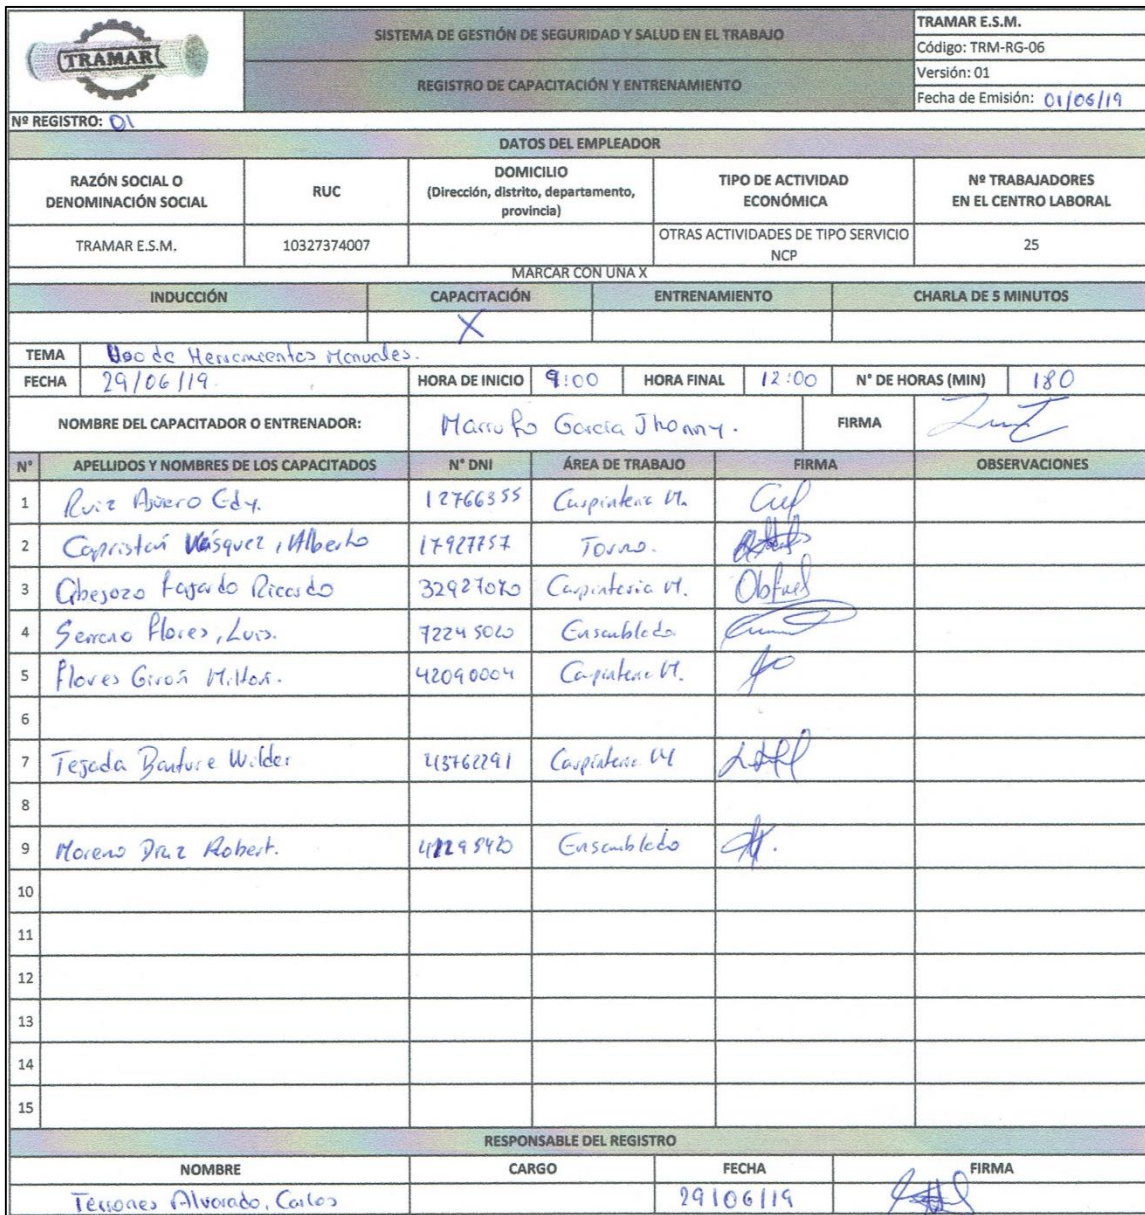 TRAMAR
SISTEMA DE GESTIÓN DE SEGURIDAD Y SALUD EN EL TRABAJO
REGISTRO DE CAPACITACIÓN Y ENTRENAMIENTO
TRAMAR E.S.M.
Código: TRM-RG-06
Versión: 01
Fecha de Emisión: 01/06/19
Nº REGISTRO: 01
DATOS DEL EMPLEADOR
RAZÓN SOCIAL O DENOMINACIÓN SOCIAL
RUC
DOMICILIO (Dirección, distrito, departamento, provincia)
TIPO DE ACTIVIDAD ECONÓMICA
Nº TRABAJADORES EN EL CENTRO LABORAL
TRAMAR E.S.M. 10327374007 OTRAS ACTIVIDADES DE TIPO SERVICIO NCP 25
MARCAR CON UNA X
INDUCCIÓN CAPACITACIÓN ENTRENAMIENTO CHARLA DE 5 MINUTOS
X
TEMA Uso de Herramientas Manuales.
FECHA 29/06/19. HORA DE INICIO 9:00 HORA FINAL 12:00 N° DE HORAS (MIN) 180
NOMBRE DEL CAPACITADOR O ENTRENADOR: García Jhonny. FIRMA
N° APELLIDOS Y NOMBRES DE LOS CAPACITADOS N° DNI ÁREA DE TRABAJO FIRMA OBSERVACIONES
1 Ruiz Edy. 12766355 Carpinteria M.
2 Vásquez, Alberto 17927757 Torno.
3 Fajardo Ricardo Carpinteria M.
4 Serrano Flores, Luis. Ensamblado
5 Flores Girón Milton. 42090004 Carpinteria M.
6
7 Tejada Wilder 43762291 Carpinteria M
8
9 Moreno Diaz Robert. Ensamblado
10
11
12
13
14
15
RESPONSABLE DEL REGISTRO
NOMBRE CARGO FECHA FIRMA
Terrones Alvarado, Carlos 29/06/19